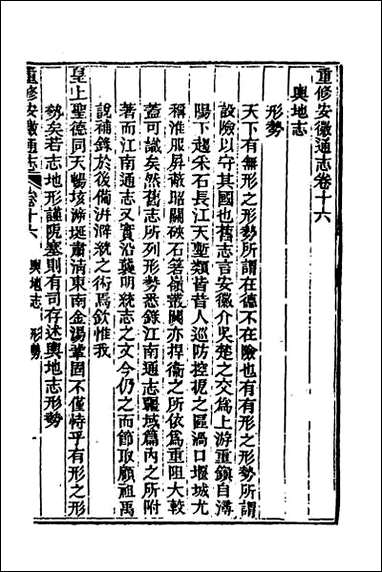 重修安徽通志卷十六
輿地志
形勢
天下有無形之形勢所謂在德不在險也有有形之形勢所謂
設險以守其國也舊志言安徽介吳楚之交爲上游重鎮自潯
陽下趨采石長江天塹類皆昔人巡防控扼之區渦口堰城尤
稱淮服屏蔽昭關硤石箬嶺叢關亦捍衞之所依爲重阻大較
蓋可識矣然舊志所列形勢悉錄江南通志疆域篇內之所附
著而江南通志又實沿襲明統志之文今仍之而節取顧祖禹
說補錄於後備浙澼絖之術焉欽惟我
皇上聖德同天暢垓溯埏肅淸東南金湯鞏固不僅恃乎有形之形
勢矣若志地形謹阨塞則有司存述輿地志形勢
重修安徽通志 卷十六 輿地志 形勢